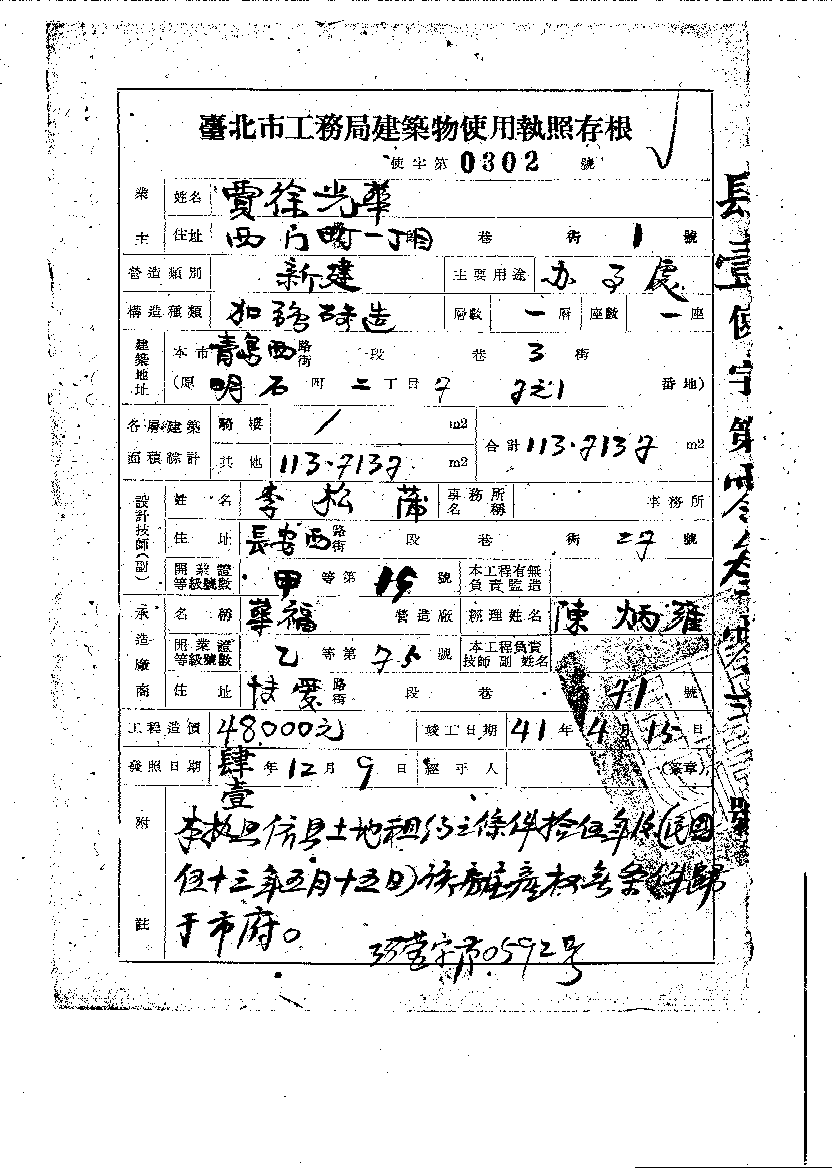 臺北市工務局建築物使用執照存根
使字第 0302 號
業主 姓名 賈徐光華
住址 西門町一丁目 巷 街 1 號
營造類別 新建 主要用途 办了處
構造種類 加強磚造 層數 一層 座數 一座
建築地址 本市青島西路街 段 巷 3 街
(原 明石町二丁目7 番地)
各層建築面積綜計 騎樓 / m2 合計 113.7137 m2
其他 113.7137 m2
設計技師(副) 姓名 李松蒲 事務所名稱 事務所
住址 長安西路街 段 巷 街 27 號
開業證等級號數 甲等第 15 號 本工程有無負責監造
承造廠商 名稱 華福 營造廠 經理姓名 陳炳雍
開業證等級號數 乙等第 75 號 本工程負責技師副姓名
住址 博愛路街 段 巷 71 號
工程造價 48,000元 竣工日期 41年4月15日
發照日期 肆壹年12月9日 經手人 (簽章)
附註
土地租約之條件拾伍年後(民國
伍十三年五月十五日)該房屋產权無条件歸
于市府。
營字第0592号
長壹使字第
號